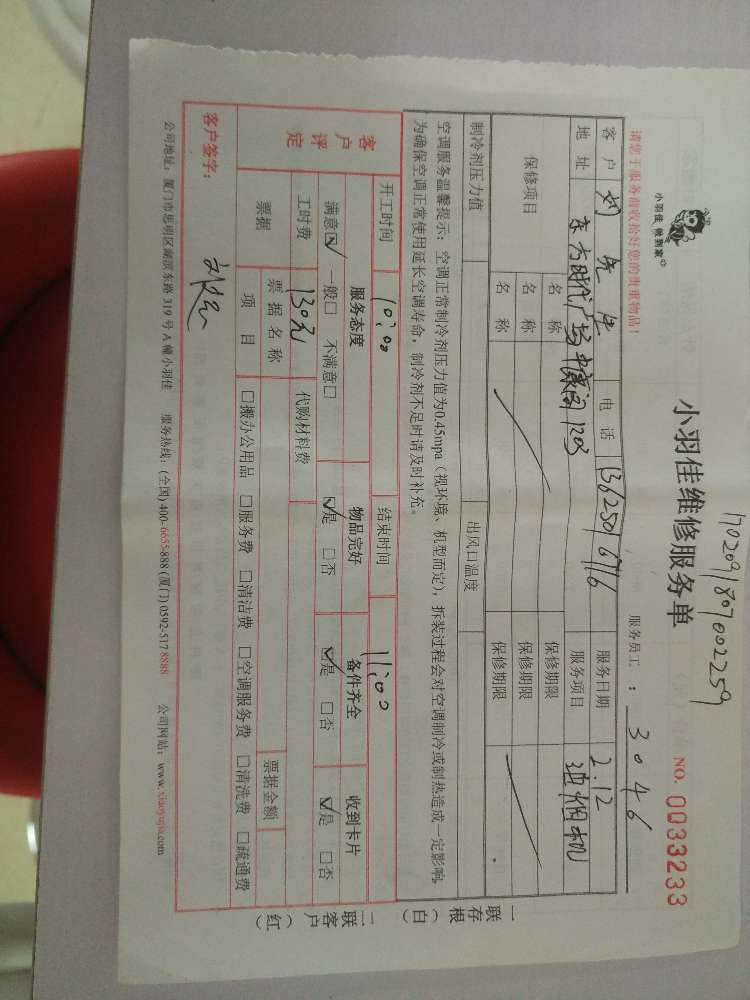 小羽佳 做到家
17020918071002259
小羽佳维修服务单
NO. 0033233
请您于服务前收拾好您的贵重物品!
服务员工 : 3046
客户 刘先生 电话 13625016716 服务日期 2.12
地址 东方时代广场 1203 服务项目 油烟机
保修项目 名称 保修期限
名称 保修期限
名称 保修期限
制冷剂压力值 出风口温度
空调服务温馨提示:空调正常制冷剂压力值为0.45mpa(视环境、机型而定),拆装过程会对空调制冷或制热造成一定影响,
为确保空调正常使用延长空调寿命,制冷剂不足时请及时补充。
开工时间 10:00 结束时间 11:00
客户评定 服务态度 物品完好 备件齐全 收到卡片
满意☑ 一般□ 不满意□ ☑是 □否 ☑是 □否 ☑是 □否
工时费 130元 代购材料费
票据 票据名称 票据金额
项目 □搬办公用品 □服务费 □清洁费 □空调服务费 □清洗费 □疏通费
客户签字:
公司地址:厦门市思明区湖滨东路 319 号 A 幢小羽佳 服务热线:(全国) 400-6655-888 (厦门) 0592-517 8888 公司网站:www.xiaoyujia.com
一联存根(白)
二联客户(红)